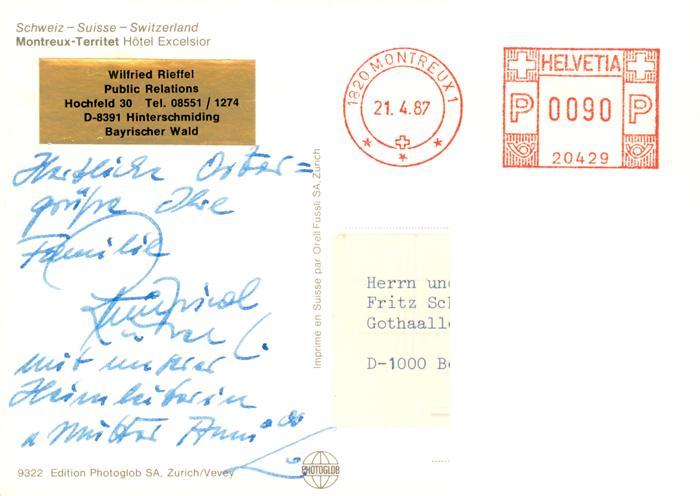 Schweiz – Suisse – Switzerland
Montreux-Territet Hôtel Excelsior
Wilfried Rieffel
Public Relations
Hochfeld 30 Tel. 08551 / 1274
D-8391 Hinterschmiding
Bayrischer Wald
1820 MONTREUX 1
21.4.87
HELVETIA
P 0090 P
20429
Herzliche Oster=
grüße Ihre
Familie
mit unserer
Heimleiterin
Mutter Anni
Imprimé en Suisse par Orell Fussli SA, Zurich
Herrn und
Fritz Sch
Gothaalle
D-1000 Be
9322 Edition Photoglob SA, Zurich/Vevey
PHOTOGLOB